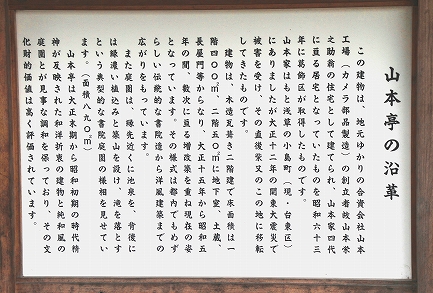 山本亭の沿革
この建物は、地元ゆかりの合資会社山本
工場（カメラ部品製造）の創立者故山本栄
之助翁の住宅として建てられ、山本家四代
に亘る居宅となっていたものを昭和六十三
年に葛飾区が取得したものです。
山本家はもと浅草の小島町（現・台東区）
にありましたが大正十二年の関東大震災で
被害を受け、その直後柴又のこの地に移転
してきたものです。
建物は、木造瓦葺き二階建て床面積は一
階四〇〇㎡、二階五〇㎡に地下室、土蔵、
長屋門等からなり、大正十五年から昭和五
年の間、数次に亘る増改築を重ね現在の姿
となっています。その様式は都内でもめず
らしい伝統的な書院造から洋風建築までの
広がりをもっています。
また庭園は、縁先近くに池泉を、背後に
は緑濃い植込みと築山を設け、滝を落とす
という典型的な書院庭園の様相を見せてい
ます。（面積八九〇㎡）
山本亭は大正末期から昭和初期の時代精
神が反映された和洋折衷の建物と純和風の
庭園とが見事な調和を保っており、その文
化財的価値は高く評価されています。